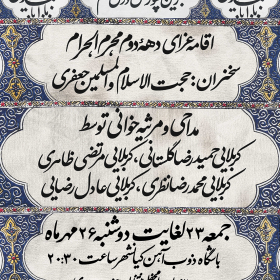 اقامه عزای دههٔ دوم محرم الحرام
سخنران : حجت الاسلام والمسلمین جعفری
مداحی و مرثیه خوانی توسط
کربلایی حمیدرضا گلستانی، کربلایی مرتضی طاهری
کربلایی محمدرضا نظری، کربلایی عادل رضایی
جمعه ۲۳ لغایت دوشنبه ۲۶ مهرماه
باشگاه ذوب آهن کیانشهر ساعت ۲۰:۳۰